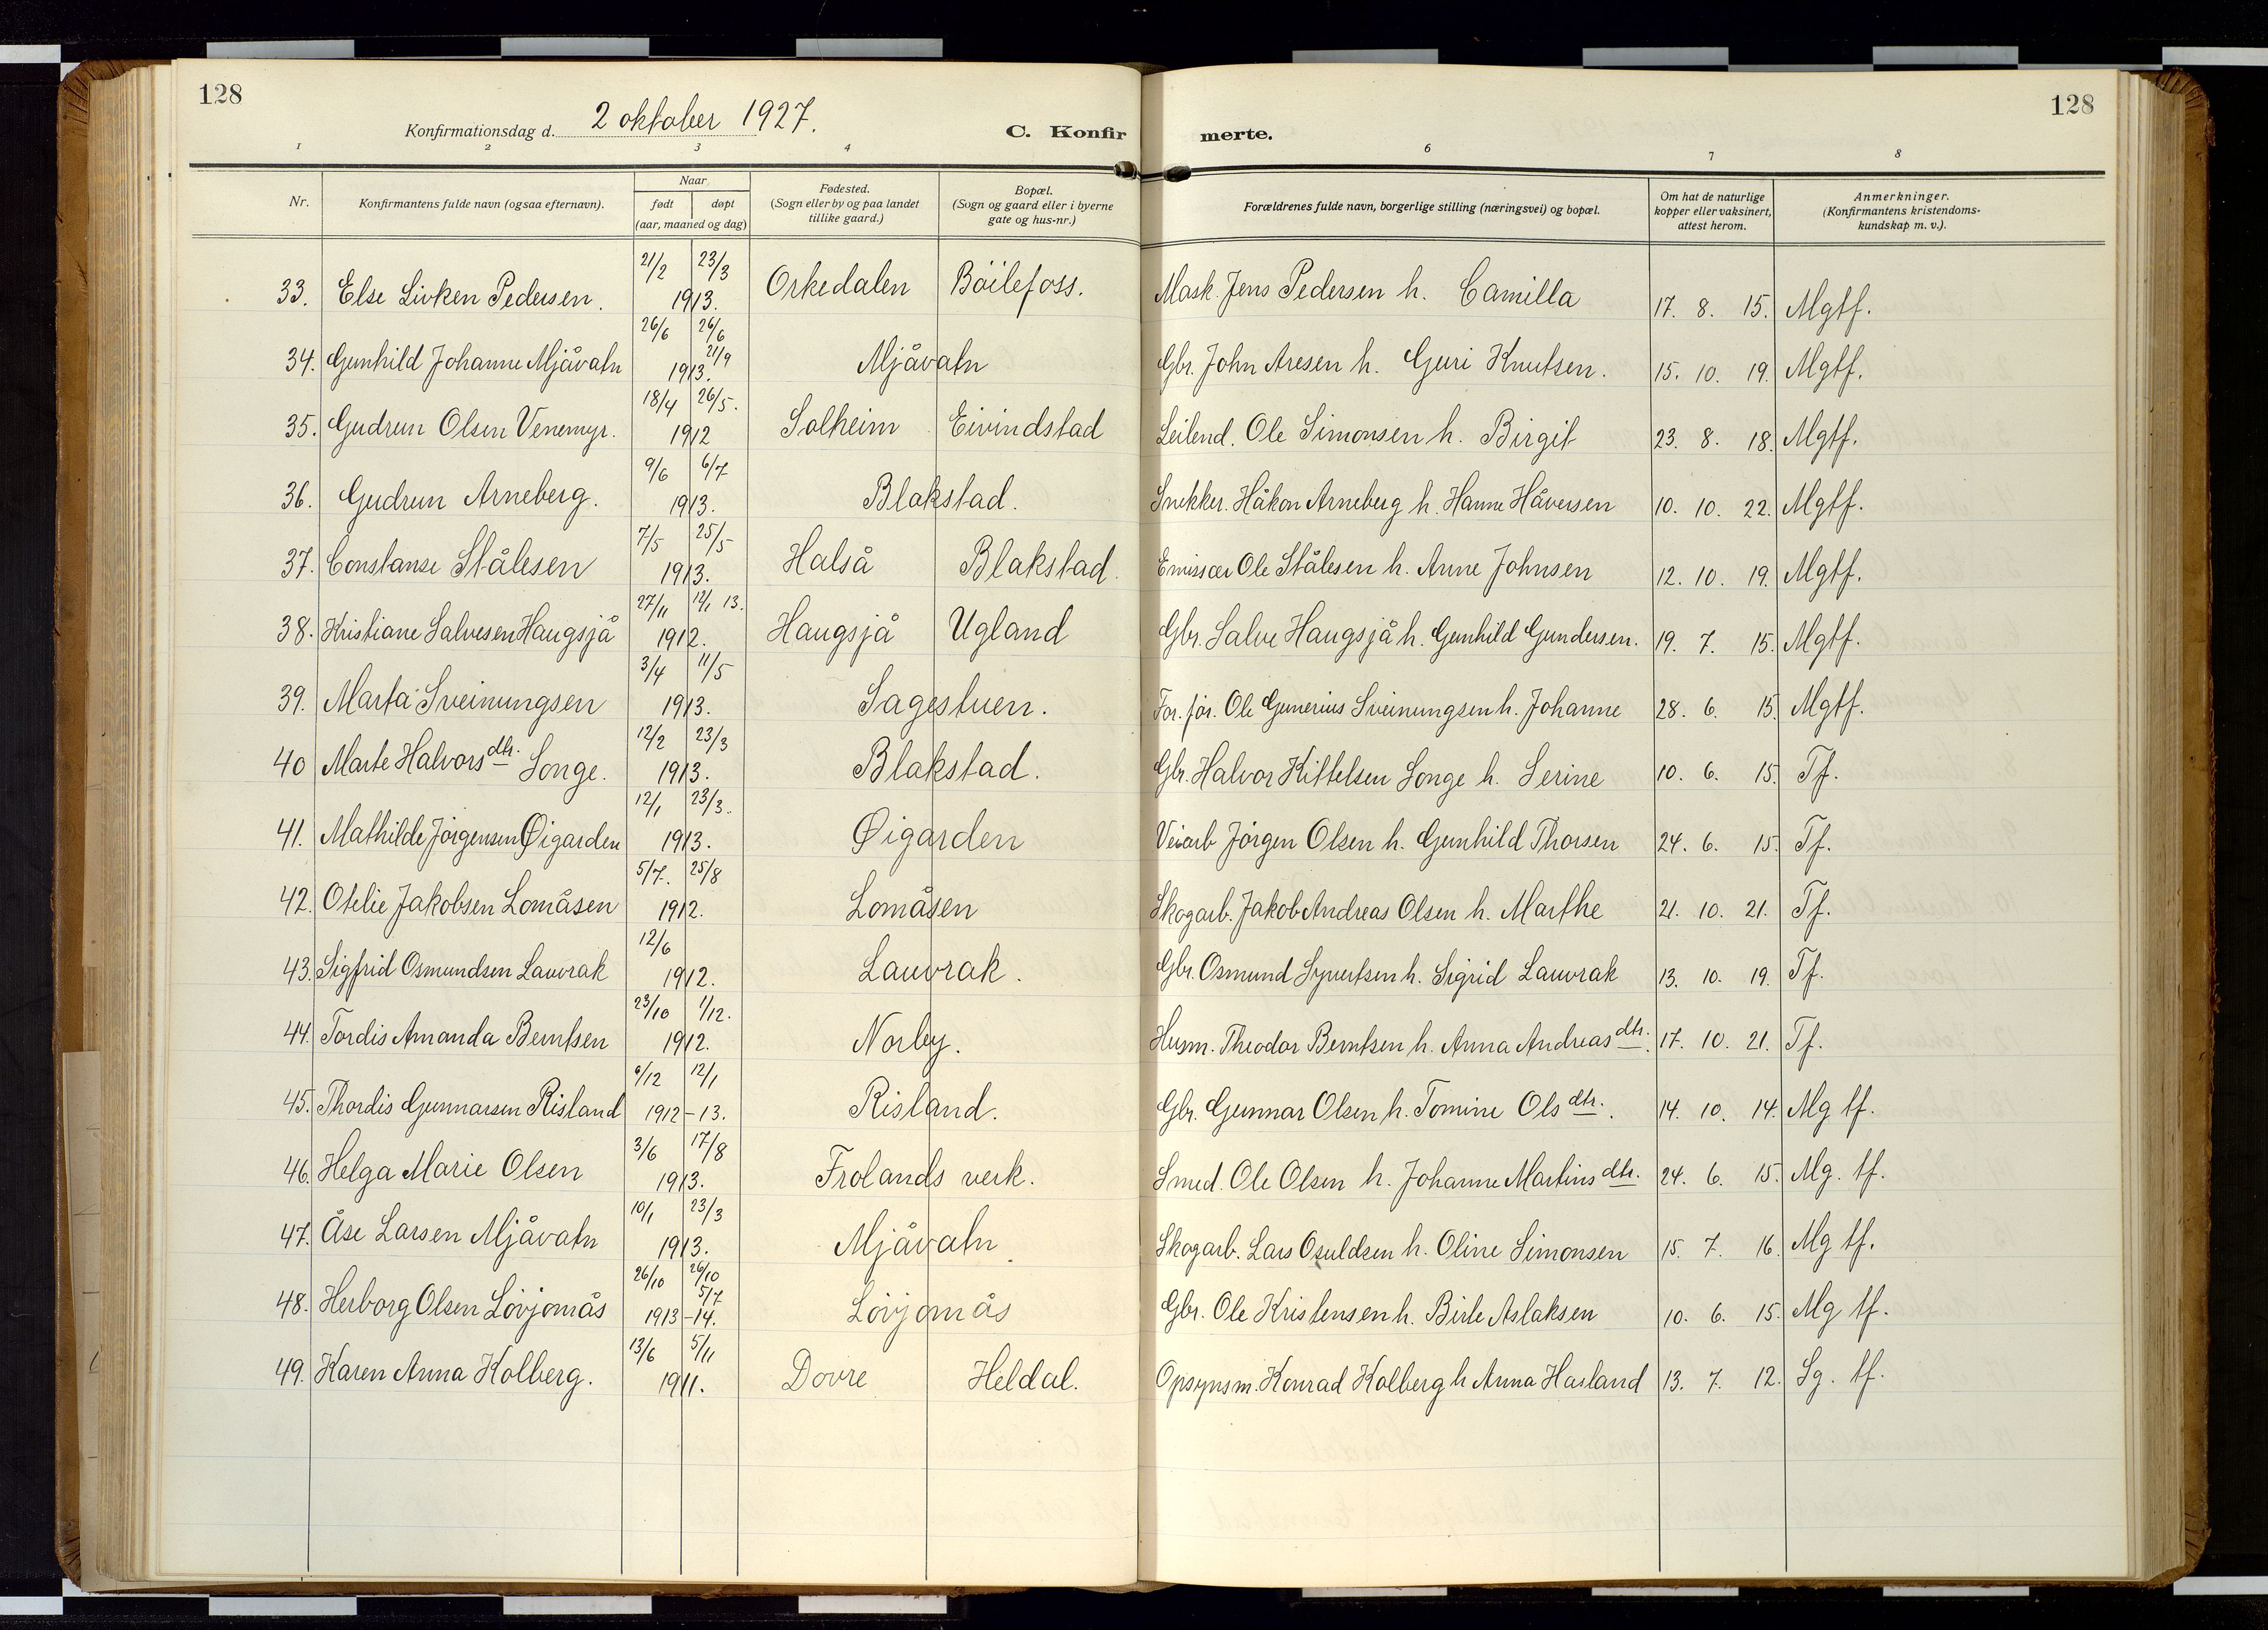 128
Konfirmationsdag d. 2 oktober 1927.
C. Konfirmerte.
128
1 2 3 4 6 7 8
Nr. | Konfirmantens fulde navn (ogsaa efternavn). | Naar født døpt (aar, maaned og dag) | Fødested. (Sogn eller by og paa landet tillike gaard.) | Bopæl. (Sogn og gaard eller i byerne gate og hus-nr.) | Forældrenes fulde navn, borgerlige stilling (næringsvei) og bopæl. | Om hat de naturlige kopper eller vaksinert, attest herom. | Anmerkninger. (Konfirmantens kristendoms-kundskap m. v.).
33. Else Livken Pedersen. 21/2 23/3 1913. Orkedalen Böilefoss. Mask. Jens Pedersen h. Camilla 17. 8. 15. Mgtf.
34. Gunhild Johanne Mjåvatn 26/6 26/6 21/9 1913. Mjåvatn Gbr. John Aresen h. Guri Knutsen. 15. 10. 19. Mgtf.
35. Gudrun Olsen Venemyr. 18/4 26/5. 1912 Solheim Eivindstad Leilend. Ole Simonsen h. Birgit 23. 8. 18. Mgtf.
36. Gudrun Arneberg. 9/6 6/7 1913. Blakstad. Snekker. Håkon Arneberg h. Hanne Håversen 10. 10. 22. Mgtf.
37. Constanse Stålesen 7/5 25/5 1913. Halså Blakstad. Emissær Ole Stålesen h. Anne Johnsen 12. 10. 19. Mgtf.
38. Kristiane Salvesen Haugsjå 27/11 12/1 13. 1912. Haugsjå Ugland Gbr. Salve Haugsjå h. Gunhild Gundersen. 19. 7. 15. Mgtf.
39. Marta Sveinungsen 3/4 11/5 1913. Sagestuen. For. för. Ole Gunerius Sveinungsen h. Johanne 28. 6. 15. Mgtf.
40 Marte Halvorsdtr. Songe. 12/2 23/3 1913. Blakstad. Gbr. Halvor Kittelsen Songe h. Serine 10. 6. 15. Tf.
41. Mathilde Jörgensen Øigarden 12/1 23/3. 1913. Øigarden Veiarb Jörgen Olsen h. Gunhild Thorsen 24. 6. 15. Tf.
42. Otelie Jakobsen Lomåsen 5/7. 25/8 1912. Lomåsen Skogarb. Jakob Andreas Olsen h. Marthe 21. 10. 21. Tf.
43. Sigfrid Osmundsen Lauvrak 12/6 1912. Lauvrak. Gbr. Osmund Syvertsen h. Sigrid Lauvrak 13. 10. 19. Tf.
44. Tordis Amanda Berntsen 23/10 1/12. 1912. Norby. Husm. Theodor Berntsen h. Anna Andreasdtr. 17. 10. 21. Tf.
45. Thordis Gunnarsen Risland 6/12 12/1 1912-13. Risland. Gbr. Gunnar Olsen h. Tomine Olsdtr. 14. 10. 14. Mg tf.
46. Helga Marie Olsen 3/6 17/8 1913. Frolands verk. Smed. Ole Olsen h. Johanne Martinsdtr. 24. 6. 15. Mg. tf.
47. Åse Larsen Mjåvatn 10/1 23/3 1913. Mjåvatn. Skogarb. Lars Osuldsen h. Oline Simonsen 15. 7. 16. Mg tf.
48. Herborg Olsen Lövjomås 26/10 26/10 5/7 1913-14. Lövjomås Gbr. Ole Kristensen h. Birte Aslaksen 10. 6. 15. Mg tf.
49. Karen Anna Kolberg. 13/6 5/11 1911. Dovre Heldal. Opsynsm. Konrad Kolberg h Anna Hasland 13. 7. 12. Sg. tf.